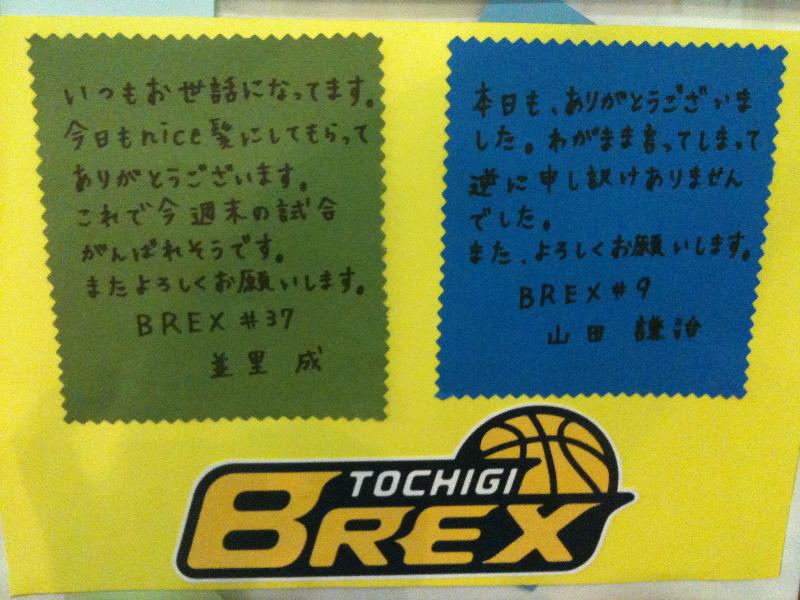 いつもお世話になってます。
今日もnice髪にしてもらって
ありがとうございます。
これで今週末の試合
がんばれそうです。
またよろしくお願いします。
BREX #37
並里 成
本日も、ありがとうございま
した。わがまま言ってしまって
逆に申し訳けありません
でした。
また、よろしくお願いします。
BREX #9
山田 謙治
TOCHIGI
BREX